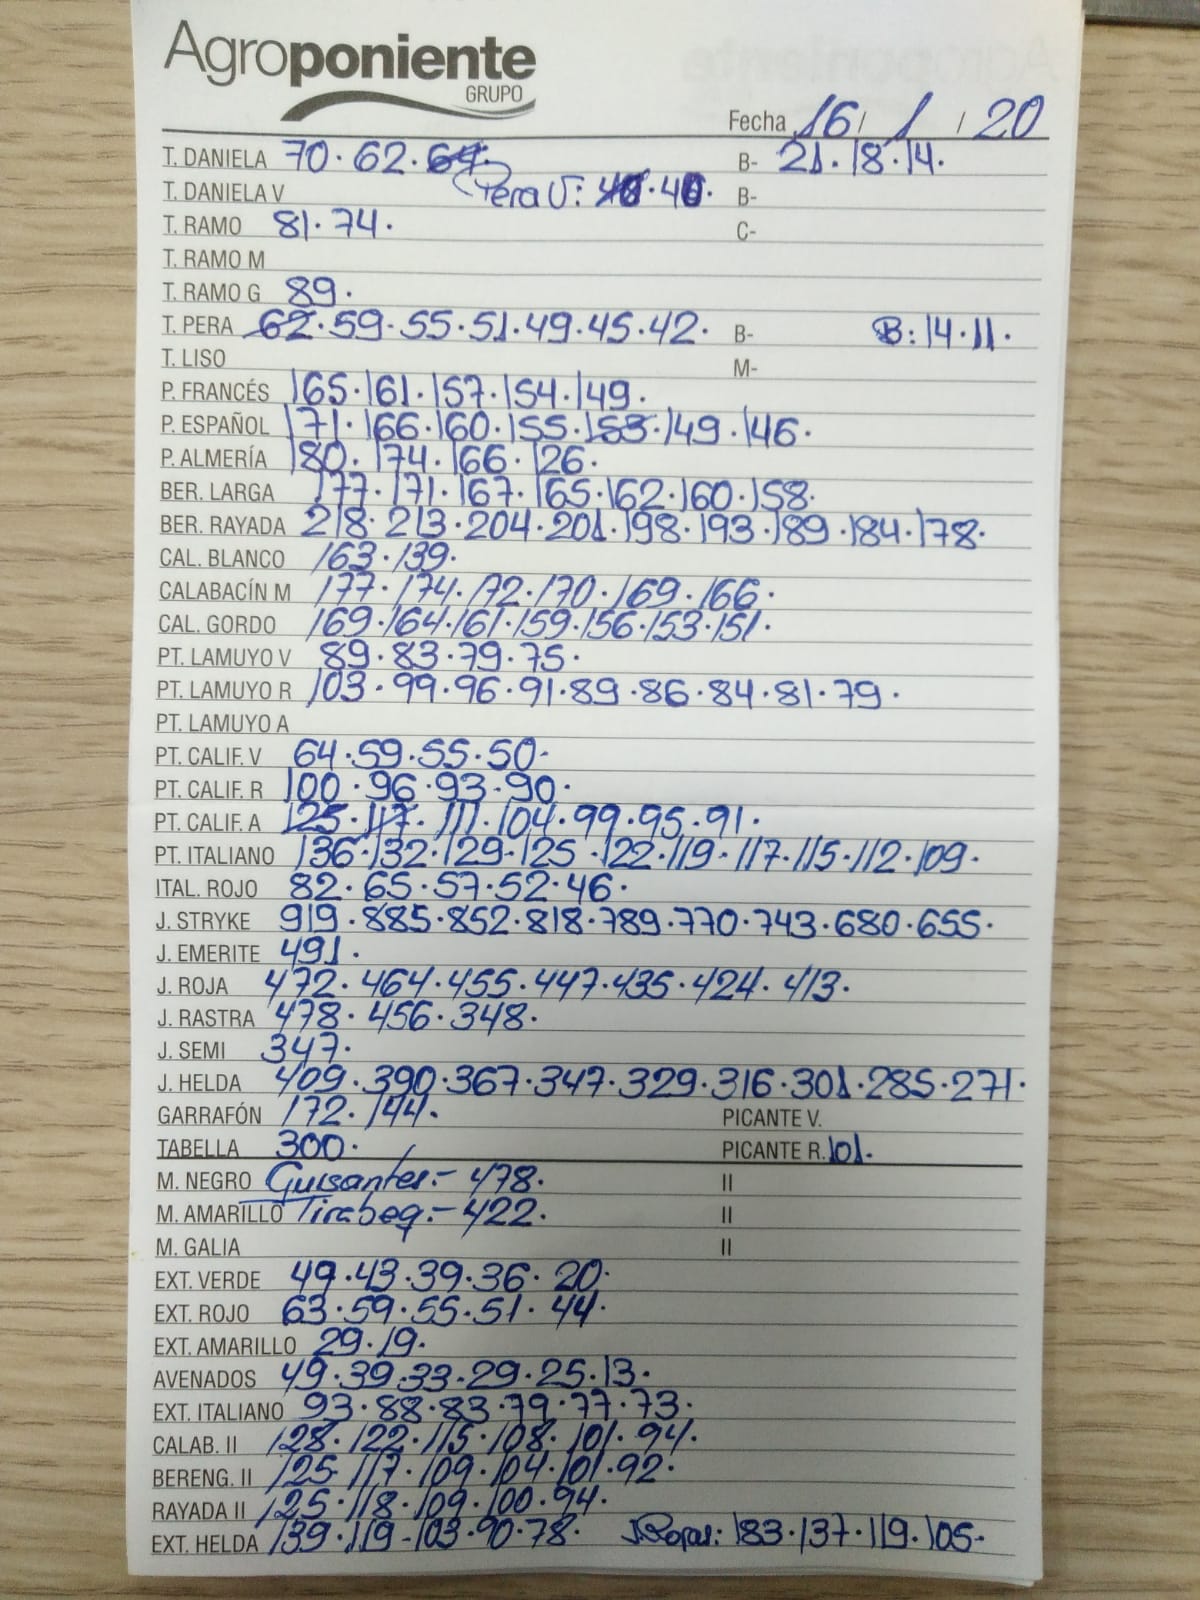 Agroponiente
GRUPO
Fecha 16 / 1 / 20
T. DANIELA 70. 62. B- 21. 18. 14.
T. DANIELA V Pera V: 40. B-
T. RAMO 81. 74. C-
T. RAMO M
T. RAMO G 89.
T. PERA 62. 59. 55. 51. 49. 45. 42. B- B: 14. 11.
T. LISO M-
P. FRANCÉS 165. 161. 157. 154. 149.
P. ESPAÑOL 171. 166. 160. 155. 153. 149. 146.
P. ALMERÍA 180. 174. 166. 126.
BER. LARGA 177. 171. 167. 165. 162. 160. 158.
BER. RAYADA 218. 213. 204. 201. 198. 193. 189. 184. 178.
CAL. BLANCO 163. 139.
CALABACÍN M 177. 174. 172. 170. 169. 166.
CAL. GORDO 169. 164. 161. 159. 156. 153. 151.
PT. LAMUYO V 89. 83. 79. 75.
PT. LAMUYO R 103. 99. 96. 91. 89. 86. 84. 81. 79.
PT. LAMUYO A
PT. CALIF. V 64. 59. 55. 50.
PT. CALIF. R 100. 96. 93. 90.
PT. CALIF. A 125. 117. 111. 104. 99. 95. 91.
PT. ITALIANO 136. 132. 129. 125. 122. 119. 117. 115. 112. 109.
ITAL. ROJO 82. 65. 57. 52. 46.
J. STRYKE 919. 885. 852. 818. 789. 770. 743. 680. 655.
J. EMERITE 491.
J. ROJA 472. 464. 455. 447. 435. 424. 413.
J. RASTRA 478. 456. 348.
J. SEMI 347.
J. HELDA 409. 390. 367. 347. 329. 316. 301. 285. 271.
GARRAFÓN 172. 144. PICANTE V.
TABELLA 300. PICANTE R. 101.
M. NEGRO Guisantes.- 478. II
M. AMARILLO Tirabeq.- 422. II
M. GALIA II
EXT. VERDE 49. 43. 39. 36. 20.
EXT. ROJO 63. 59. 55. 51. 44.
EXT. AMARILLO 29. 19.
AVENADOS 49. 39. 33. 29. 25. 13.
EXT. ITALIANO 93. 88. 83. 79. 77. 73.
CALAB. II 128. 122. 115. 108. 101. 94.
BERENG. II 125. 117. 109. 104. 101. 92.
RAYADA II 125. 118. 109. 100. 94.
EXT. HELDA 139. 119. 103. 90. 78. J. Rojas: 183. 137. 119. 105.